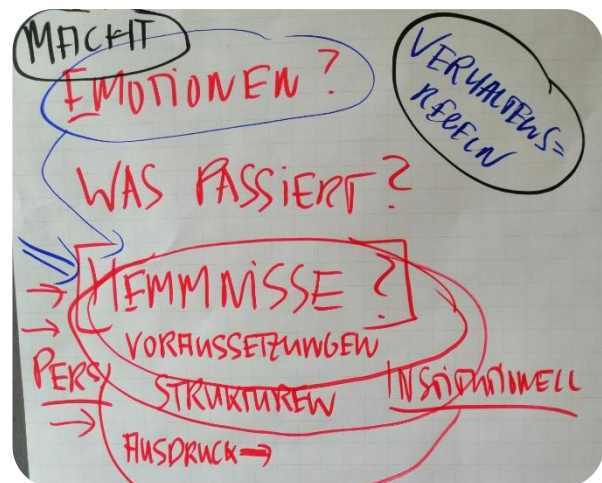 MACHT
EMOTIONEN?
VERHALTENS=
REGELN
WAS PASSIERT?
HEMMNISSE?
VORAUSSETZUNGEN
STRUKTUREN
INSTITUTIONELL
AUSDRUCK →